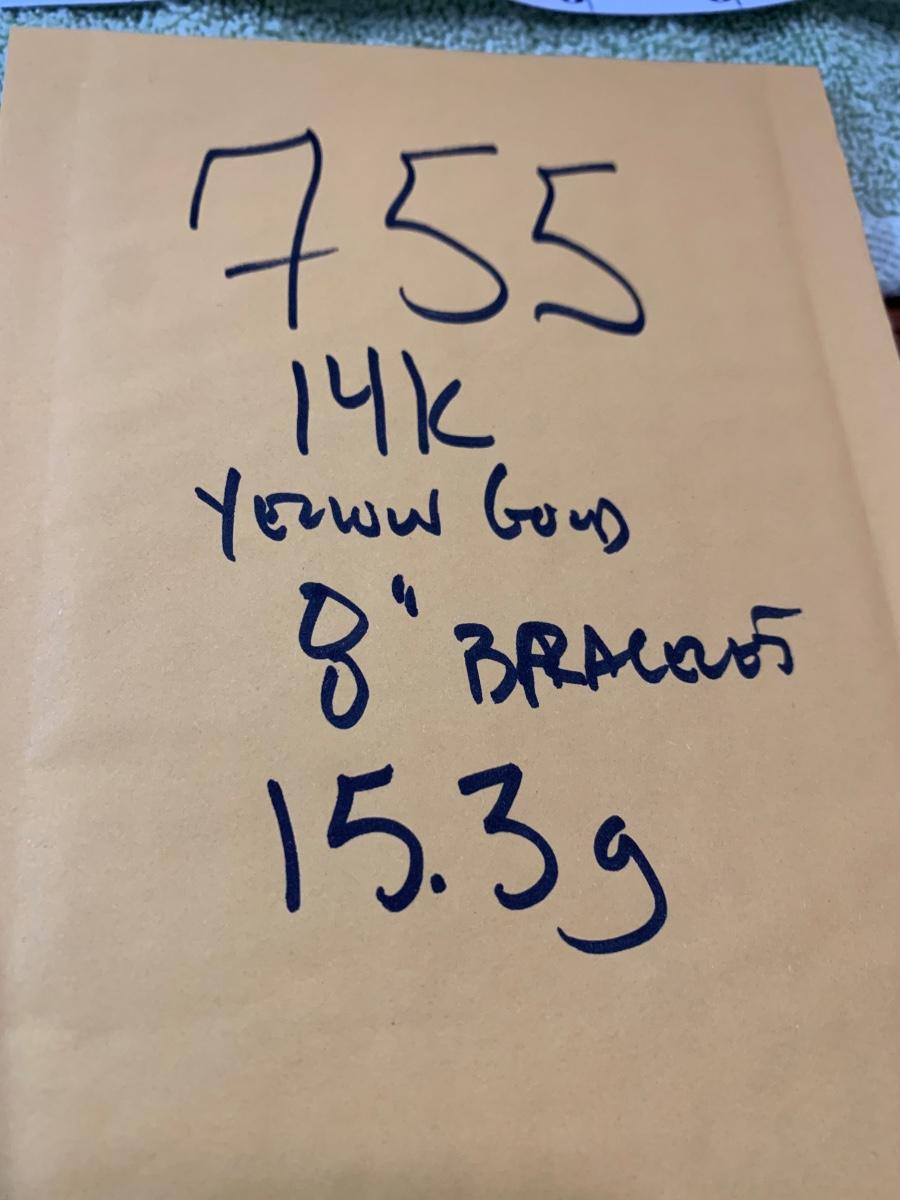 755
14K
YELLOW GOLD
8" BRACELET
15.3g